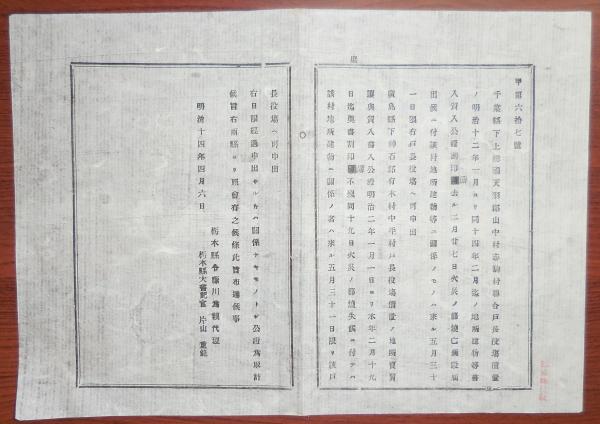 甲第六拾七號
千葉縣下上總國天羽郡山中村志駒村聯合戸長役場備置
ノ明治十二年一月ヨリ同十四年二月迄ノ地所建物等書
入質入公證割印簿去ル二月廿七日火災ノ節燒亡
出候ニ付該村地所建物等ニ關係ノモノハ來ル五月三十
一日限右戸長役場ヘ可申出
廣島縣下神石郡有木村中平村戸長役場備置ノ地所賣買
讓與質入書入公證明治二年一月一日ヨリ本年二月十九
日迄奥書割印簿不殘同十九日火災ノ節燒失候ニ付テハ
該村地所建物ニ關係ノ者ハ來ル五月三十一日限リ該戸
長役場ヘ可申出
右日限經過申出サルモノハ關係ナキモノトシ公證為取計
候旨右兩縣ヨリ照會有之候條此旨布達候事
明治十四年四月六日
栃木縣令藤川為親代理
栃木縣大書記官 片山重範